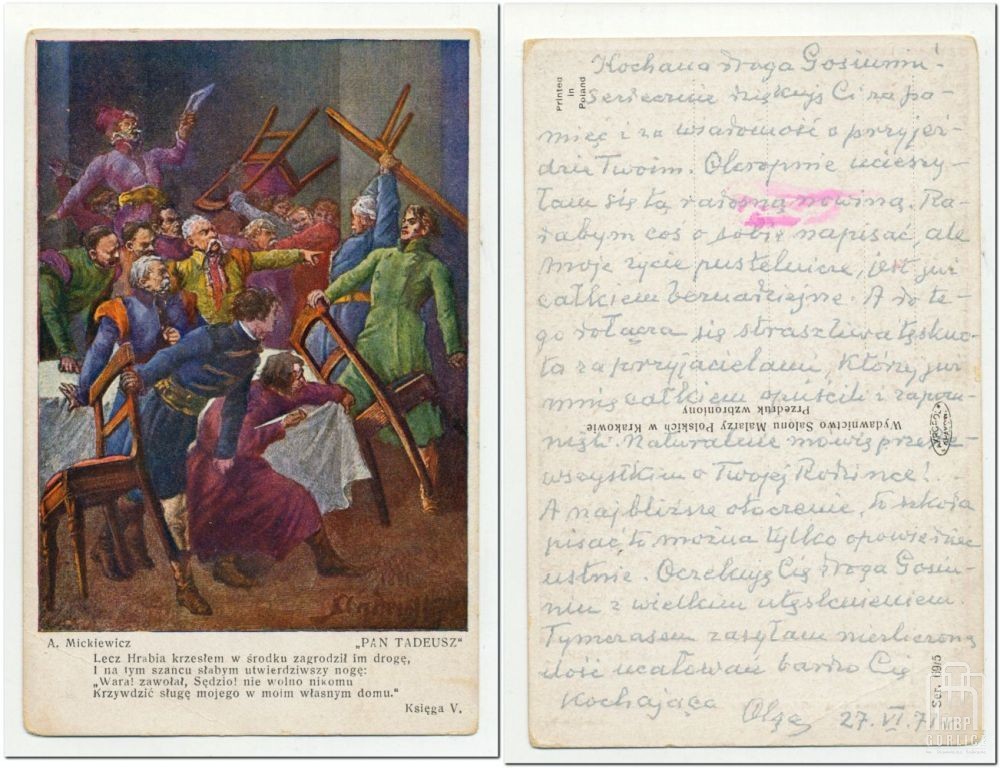 A. Mickiewicz „PAN TADEUSZ“
Lecz Hrabia krzesłem w środku zagrodził im drogę,
I na tym szańcu słabym utwierdziwszy nogę:
„Wara! zawołał, Sędzio! nie wolno nikomu
Krzywdzić sługę mojego w moim własnym domu.“
Księga V.
Printed
in
Poland
Kochana droga Gosiuniu.
serdecznie dziękuję Ci za pa-
mięć i za wiadomość o przyjeź-
dzie Twoim. Okropnie ucieszy-
łam się tą radosną nowiną. Ra-
dabym coś o sobie napisać, ale
moje życie pustelnicze, jest już
całkiem beznadziejne. A do te-
go dołącza się straszliwa tęskno-
ta za przyjacielami, którzy już
mnię całkiem opuścili i zapom-
nieli. Naturalnie mówię przede-
wszystkim o Twojej Rodzince!
A najbliższe otoczenie, to szkoda
pisać to można tylko opowiedzieć
ustnie. Oczekuję Cię droga Gosiu-
niu z wielkim utęsknieniem.
Tymczasem zasyłam niezliczoną
ilość ucałowań bardzo Cię
Kochająca
Olga 27. VI. 7
Wydawnictwo Salonu Malarzy Polskich w Krakowie.
Przedruk wzbroniony
Ser. 69/5
MBP
GORLICE